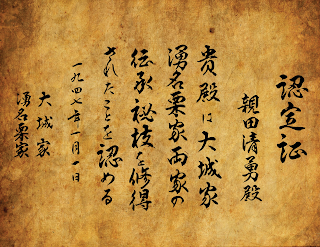 認定証
親田清勇殿
貴殿は大城家
湧名栗家両家の
伝承秘技を修得
されたことを認める
一九四七年一月一日
大城家
湧名栗家